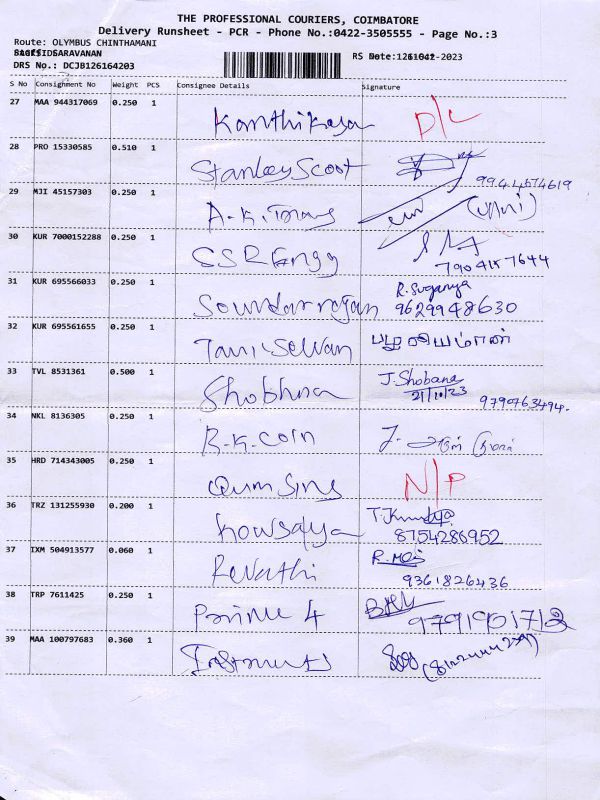 THE PROFESSIONAL COURIERS, COIMBATORE
Delivery Runsheet - PCR - Phone No.:0422-3505555 - Page No.:3
Route: OLYMBUS CHINTHAMANI
SARAVANAN
DRS No.: DCJB126164203
S No Consignment No Weight PCS Consignee Details Signature
27 MAA 944317069 0.250 1 D/L
28 PRO 15330585 0.510 1 Stanley Scoot 9944574619
29 MJI 45157303 0.250 1 A.K.
30 KUR 7000152288 0.250 1 SSR Engg 7904157644
31 KUR 695566033 0.250 1 Soundarrajan R. Suganya 9629948630
32 KUR 695561655 0.250 1 Tamilselvan பழனியம்மாள்
33 TVL 8531361 0.500 1 Shobhna J. Shobana 21/10/23 9790763494.
34 NKL 8136305 0.250 1 R.K. Coin J.
35 HRD 714343005 0.250 1 N/P
36 TRZ 131255930 0.200 1 Kowsalya 8754286952
37 IXM 504913577 0.060 1 Revathi 9361826436
38 TRP 7611425 0.250 1 Prime 4 9791901712
39 MAA 100797683 0.360 1